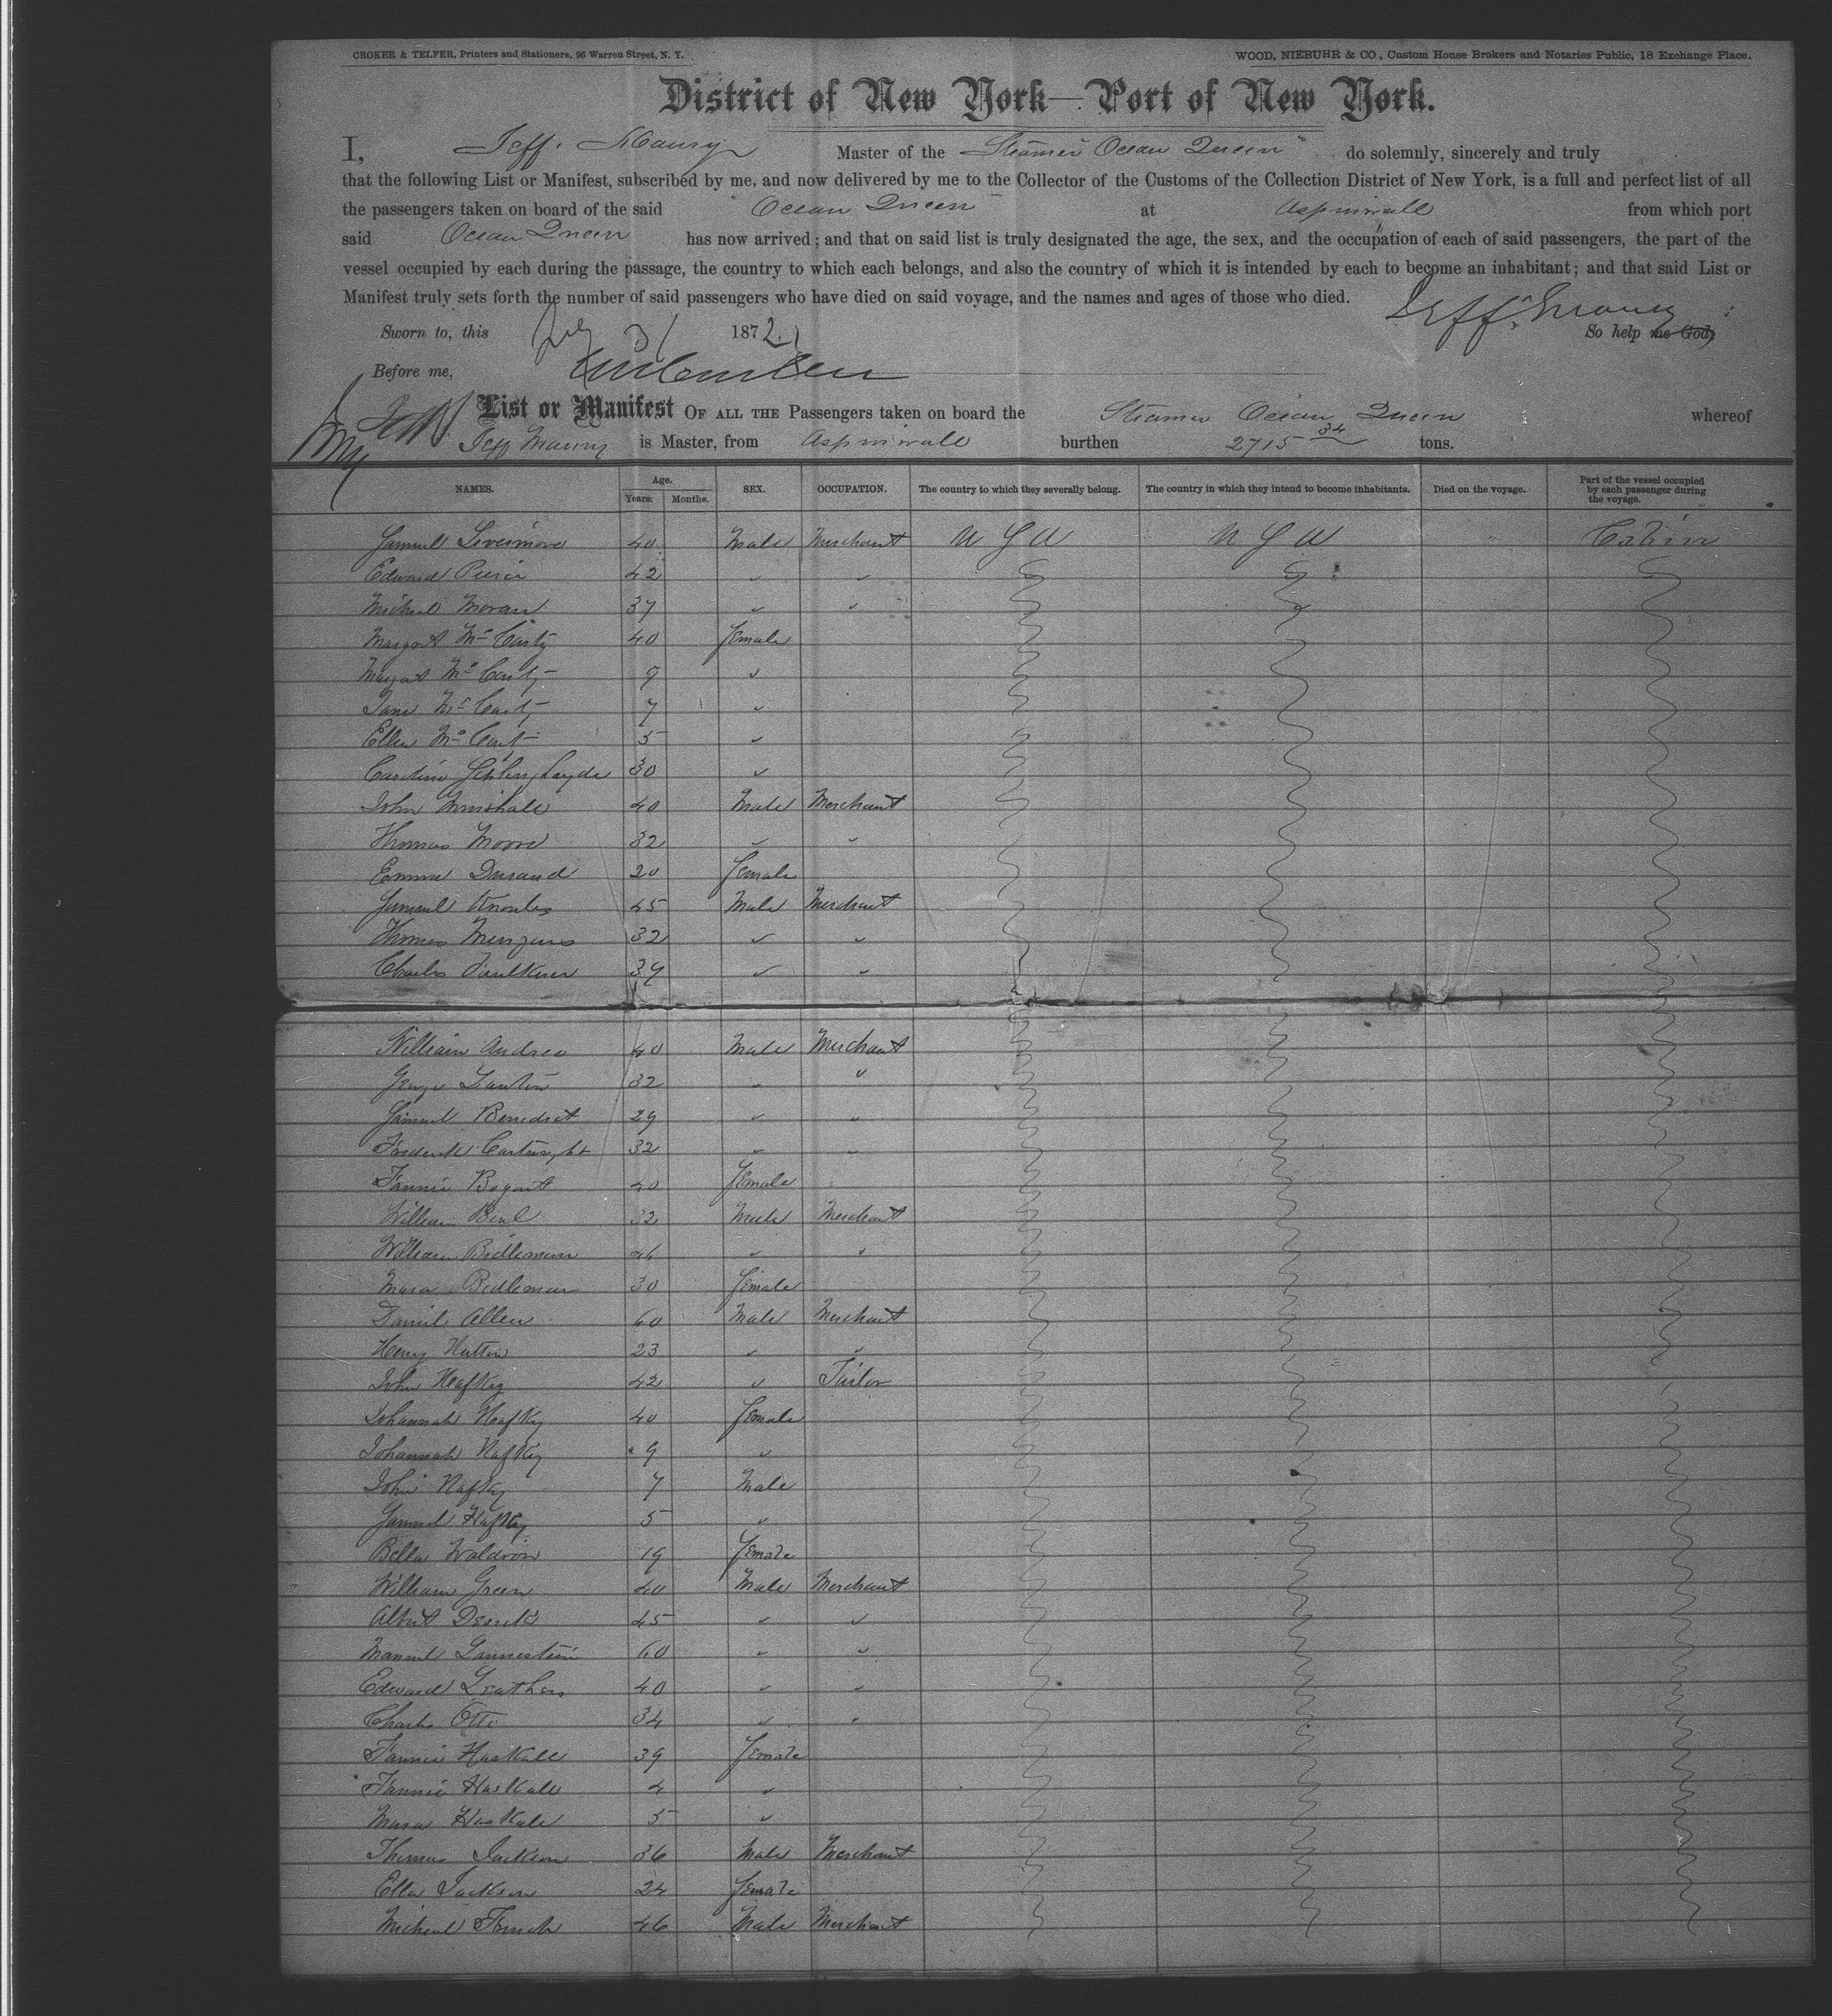 CROKER & TELFER, Printers and Stationers, 96 Warren Street, N. Y. WOOD, NIEBUHR & CO., Custom House Brokers and Notaries Public, 18 Exchange Place.
District of New York—Port of New York.
I, Jeff. Maury Master of the Steamer Ocean Queen do solemnly, sincerely and truly
that the following List or Manifest, subscribed by me, and now delivered by me to the Collector of the Customs of the Collection District of New York, is a full and perfect list of all
the passengers taken on board of the said Ocean Queen at Aspinwall from which port
said Ocean Queen has now arrived; and that on said list is truly designated the age, the sex, and the occupation of each of said passengers, the part of the
vessel occupied by each during the passage, the country to which each belongs, and also the country of which it is intended by each to become an inhabitant; and that said List or
Manifest truly sets forth the number of said passengers who have died on said voyage, and the names and ages of those who died. Jeff. Maury
Sworn to, this 31 1872 So help me God,
Before me,
List or Manifest OF ALL THE Passengers taken on board the Steamer Ocean Queen whereof
Jeff Maury is Master, from Aspinwall burthen 2715 34 tons.
NAMES. Age. Years. Months. SEX. OCCUPATION. The country to which they severally belong. The country in which they intend to become inhabitants. Died on the voyage. Part of the vessel occupied by each passenger during the voyage.
Samuel Livermore 40 Male Merchant U S A U S A Cabin
Edward Pierce 42
Micheal Moran 37
Margaret McCarty 40 Female
Margaret McCarty 9
Jane McCarty 7
Ellen McCarty 5
Caroline 30
John 40 Male Merchant
Thomas Moore 32
Emma Durand 20 Female
Samuel Knowles 45 Male Merchant
Thomas 32
Charles Faulkner 37
William Andrew 40 Male Merchant
George 32
Samuel Benedict 29
Frederick Cartwright 32
Fannie Bogart 40 Female
William 32 Male Merchant
William Bidleman 46
Bidleman 30 Female
Daniel Allen 60 Male Merchant
Henry Hutton 23
John Hafkey 42 Tailor
Johannah Hafkey 40 Female
Johannah Hafkey 9
John Hafkey 7 Male
Samuel Hafkey 5
Bella Waldron 19 Female
William Green 40 Male Merchant
Albert 45
60
Edward Leathers 40
Charles Otto 34
Fannie Haskall 39 Female
Fannie Haskall 4
Haskall 5
Thomas Jackson 36 Male Merchant
Ella Jackson 24 Female
Micheal French 46 Male Merchant